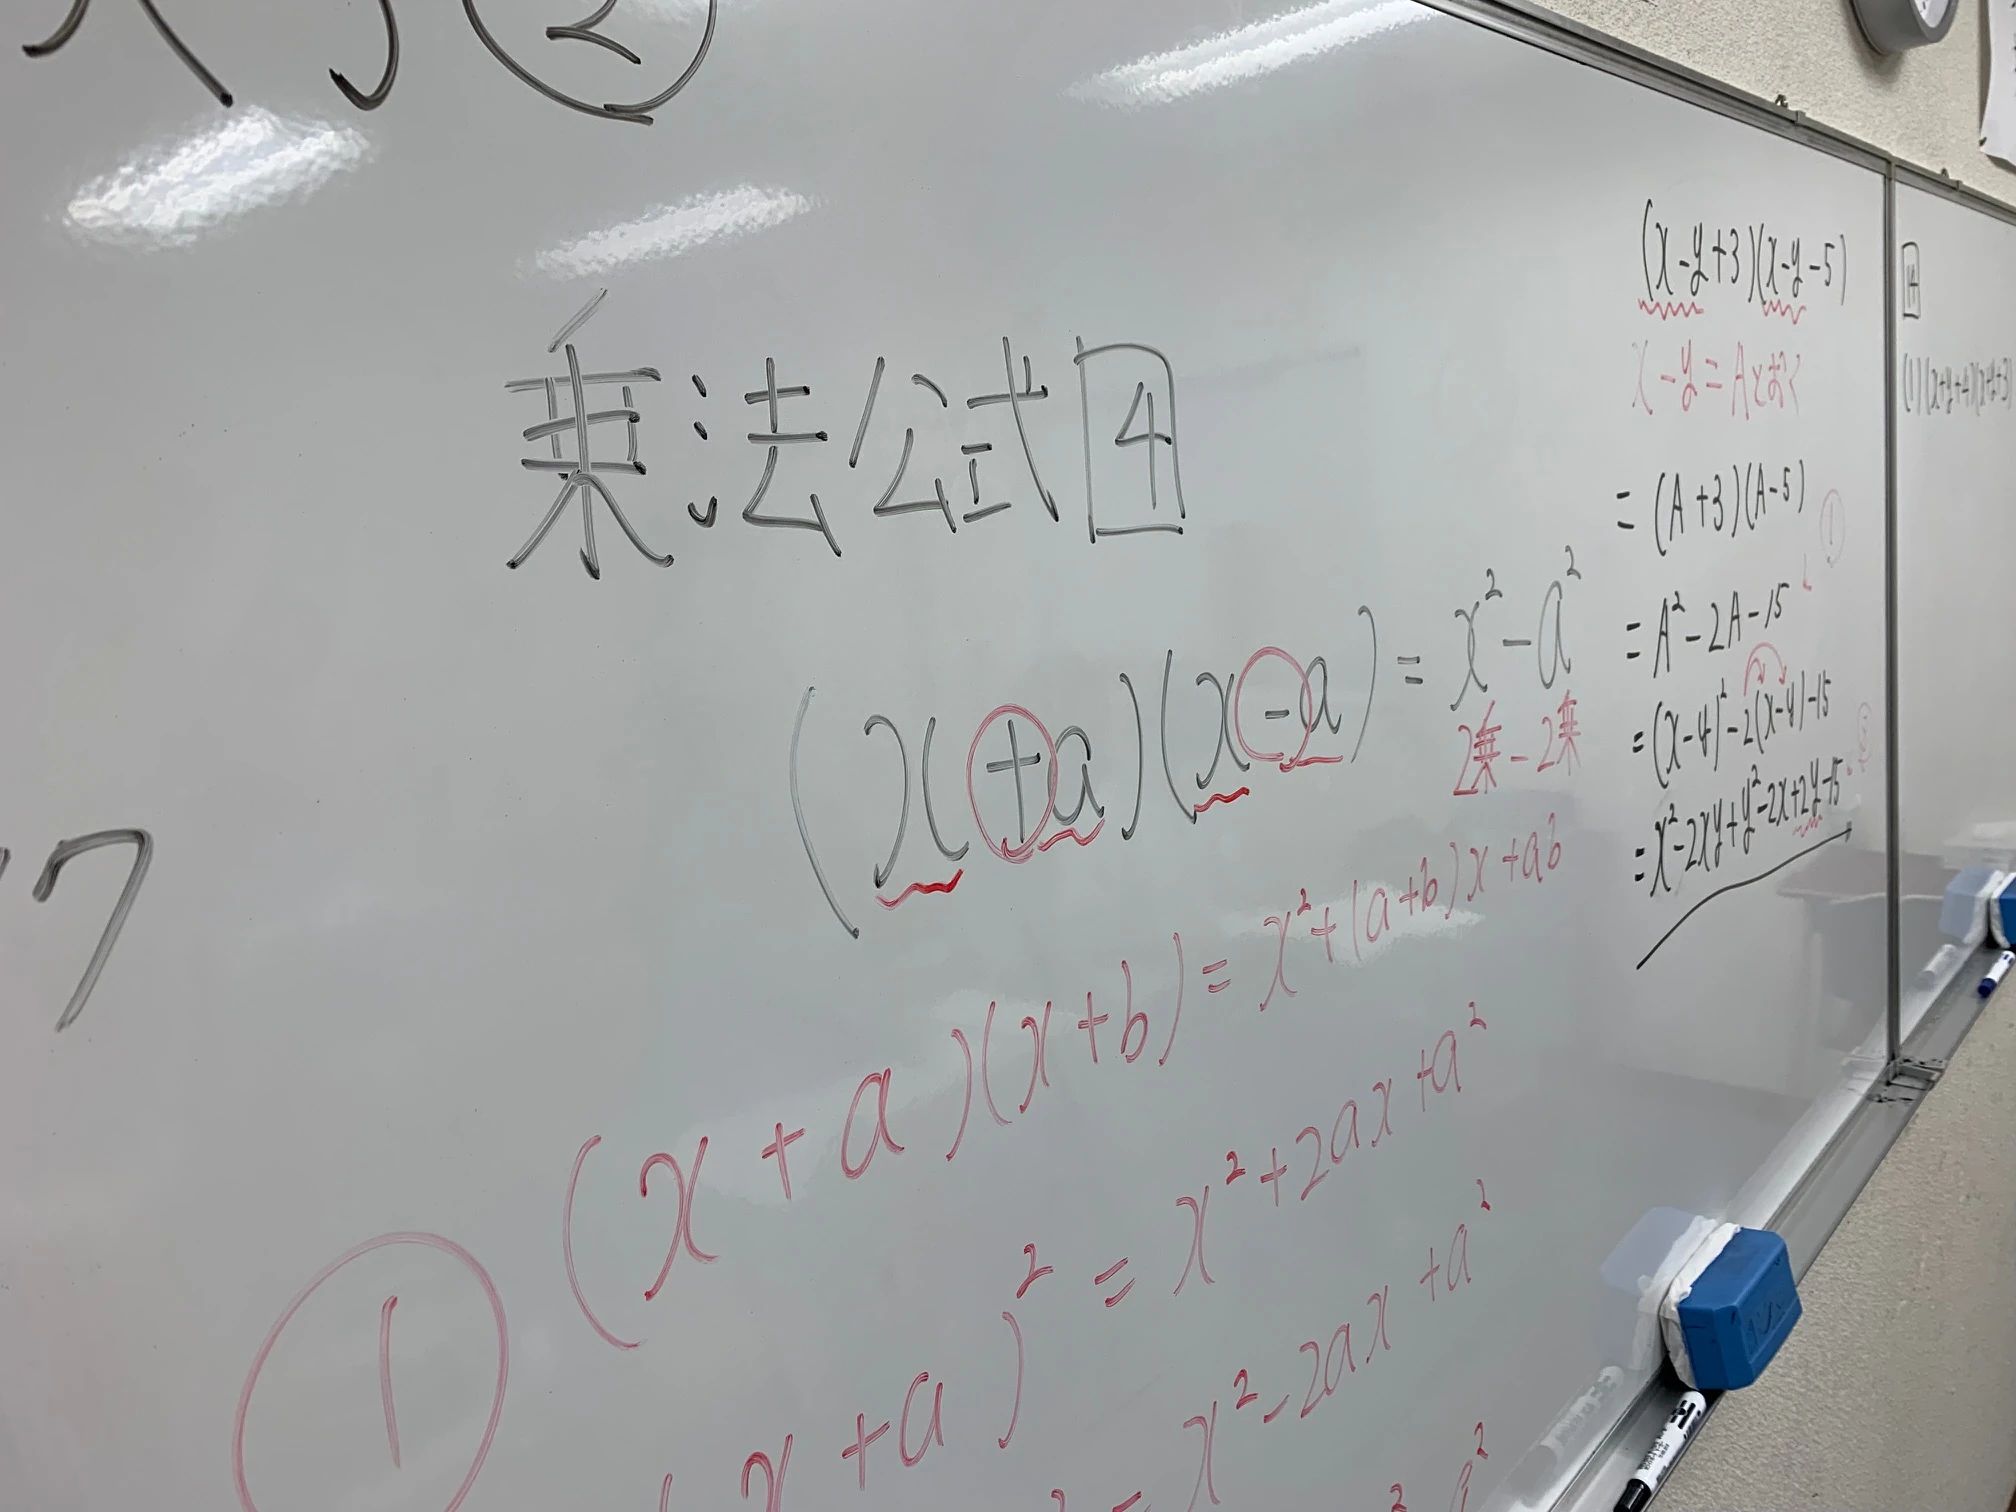 ②
7
乗法公式 4
(x+a)(x-a) = x² - a²
2乗 - 2乗
(x+a)(x+b) = x²+(a+b)x+ab
① 
(x+a)² = x²+2ax+a²
= x²-2ax+a²
(x-y+3)(x-y-5)
x-y=Aとおく
= (A+3)(A-5)
①
= A²-2A-15
= (x-y)²-2(x-y)-15
= x²-2xy+y²-2x+2y-15
4
(1) (x+y+4)(x+y+3)